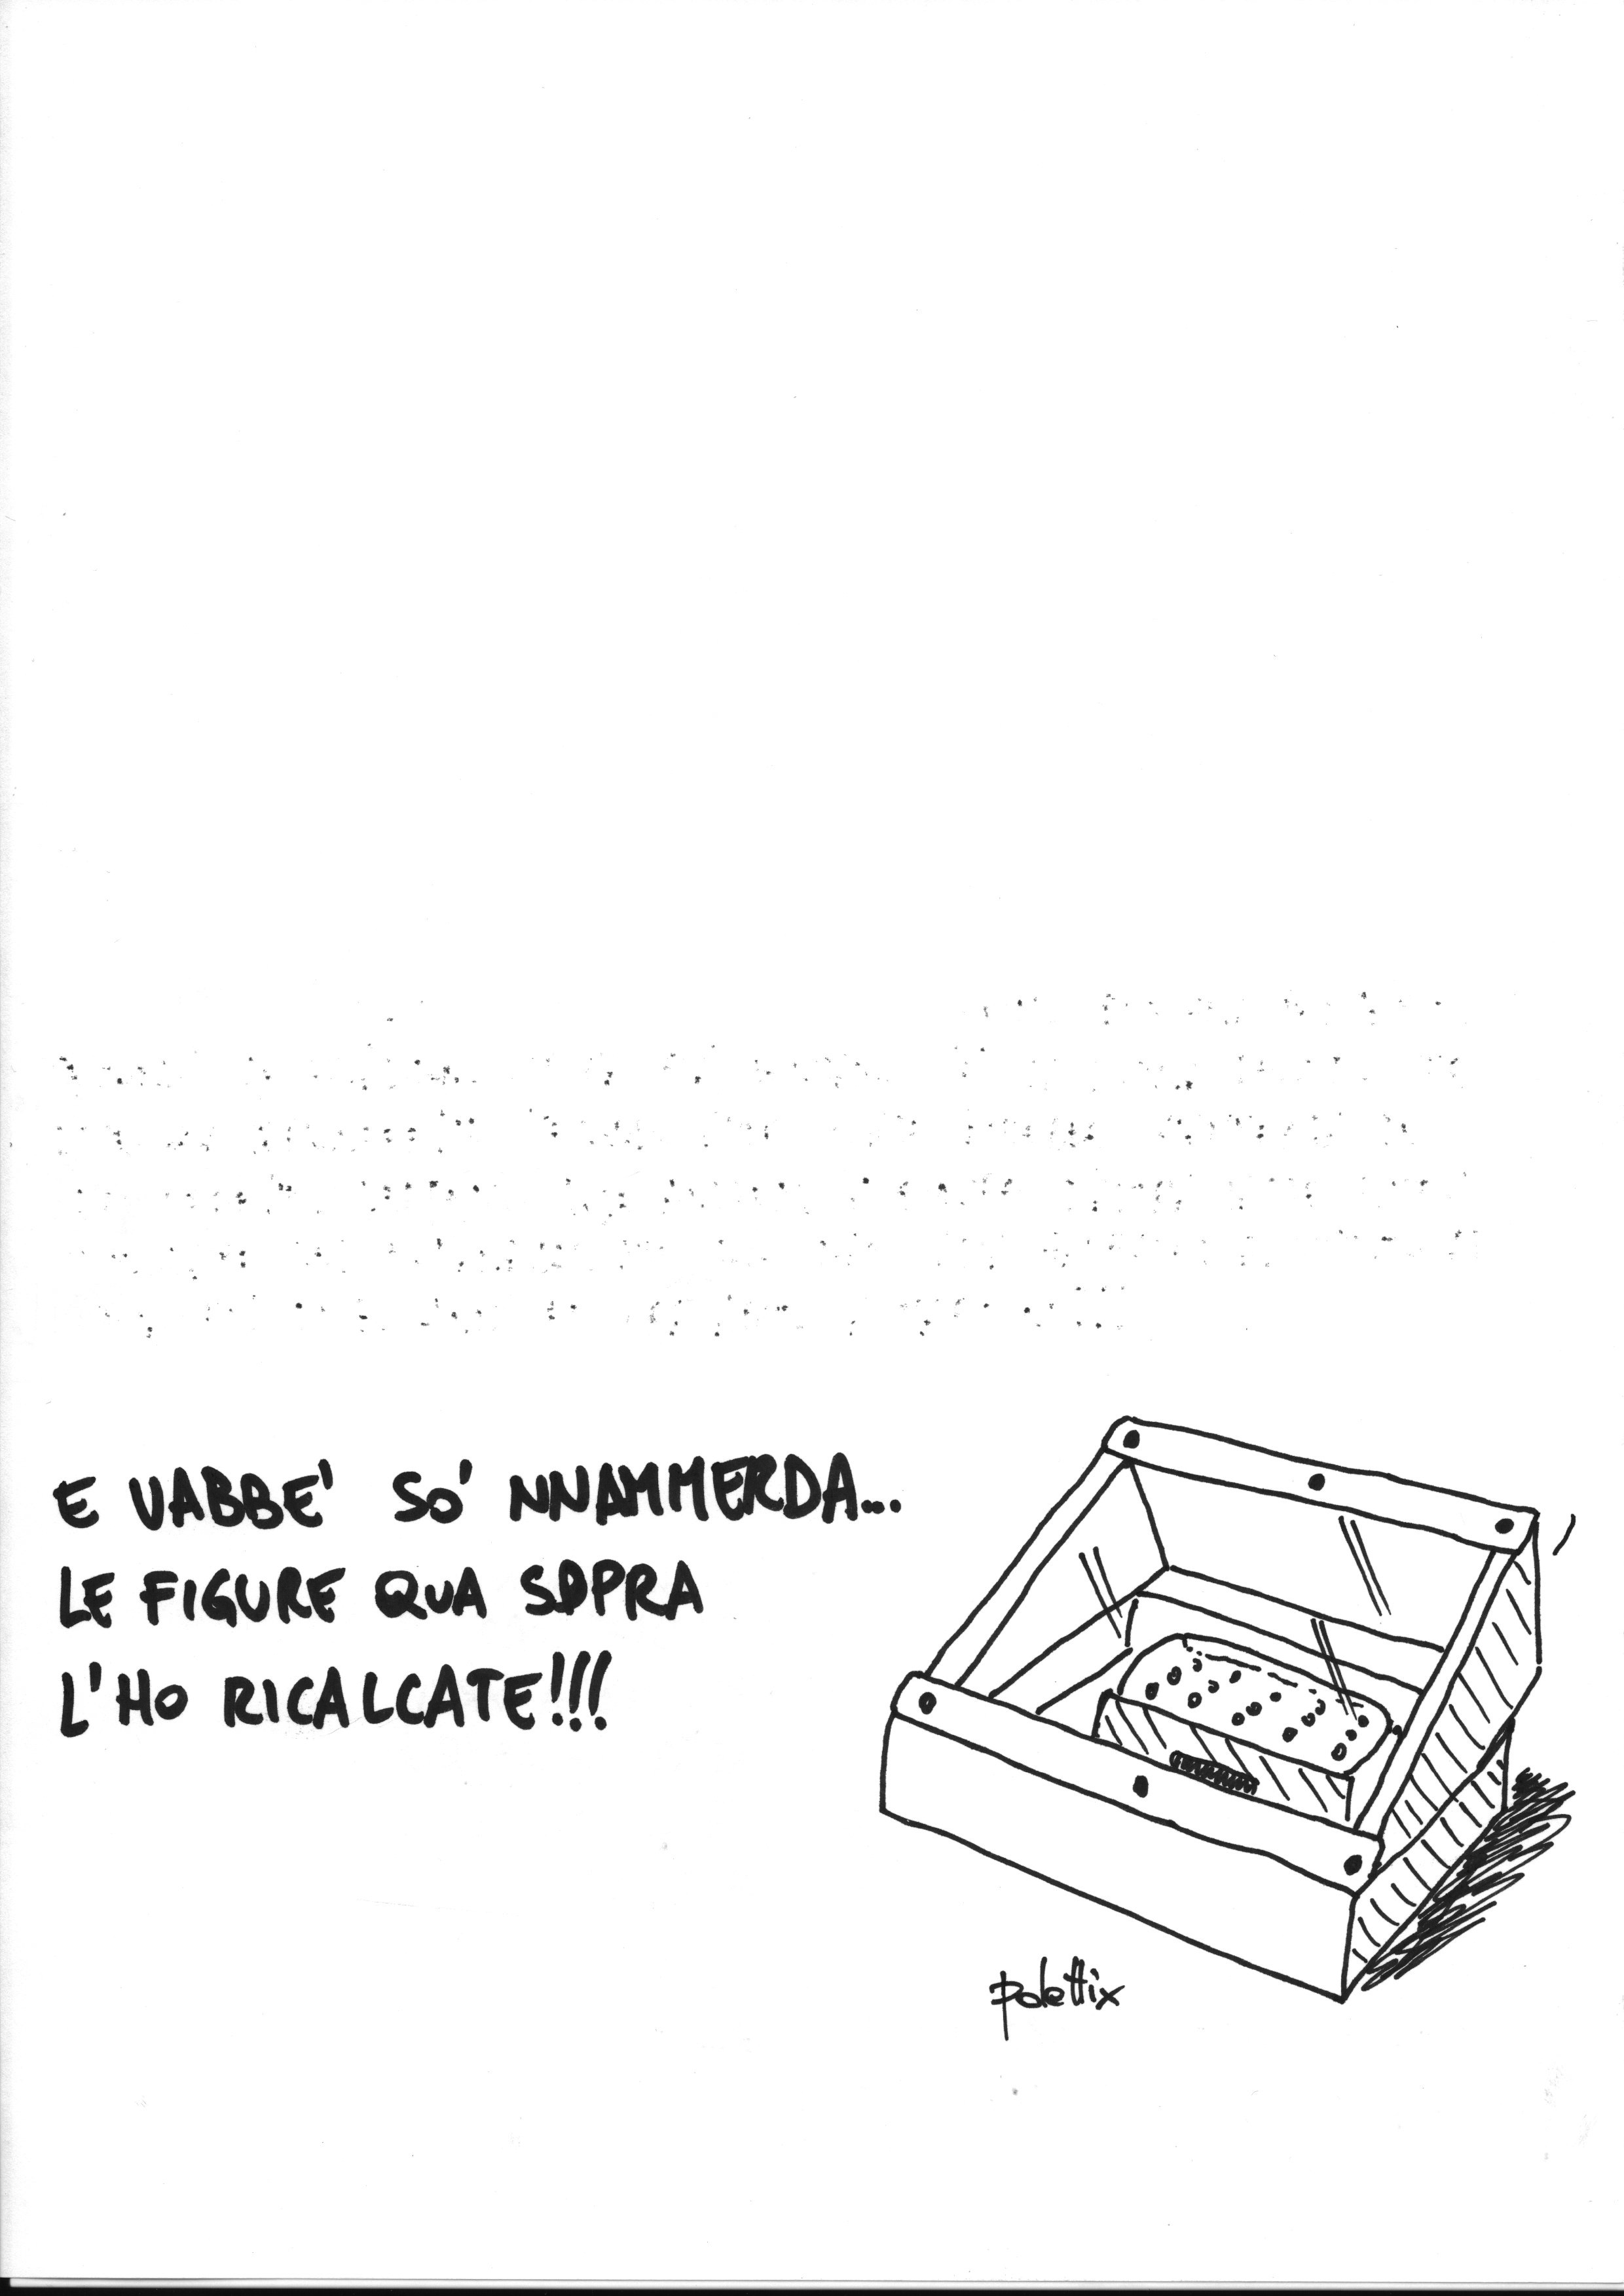 E VABBE' SO' NNAMMERDA...
LE FIGURE QUA SOPRA
L'HO RICALCATE!!!
polettix